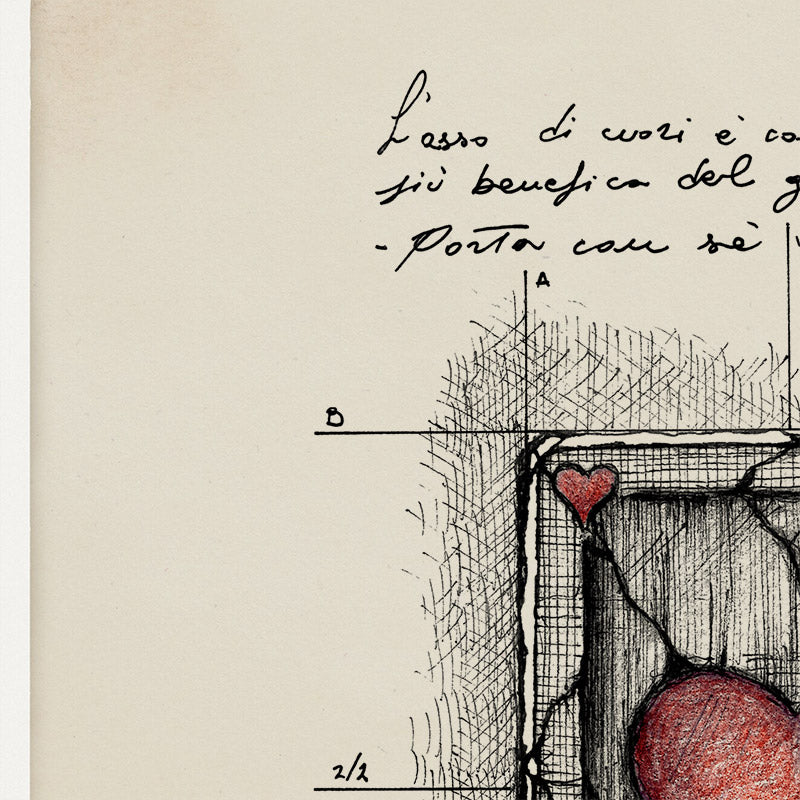 L'asso di cuori è co
più benefica del g
- Porta con sè
A
B
2/2